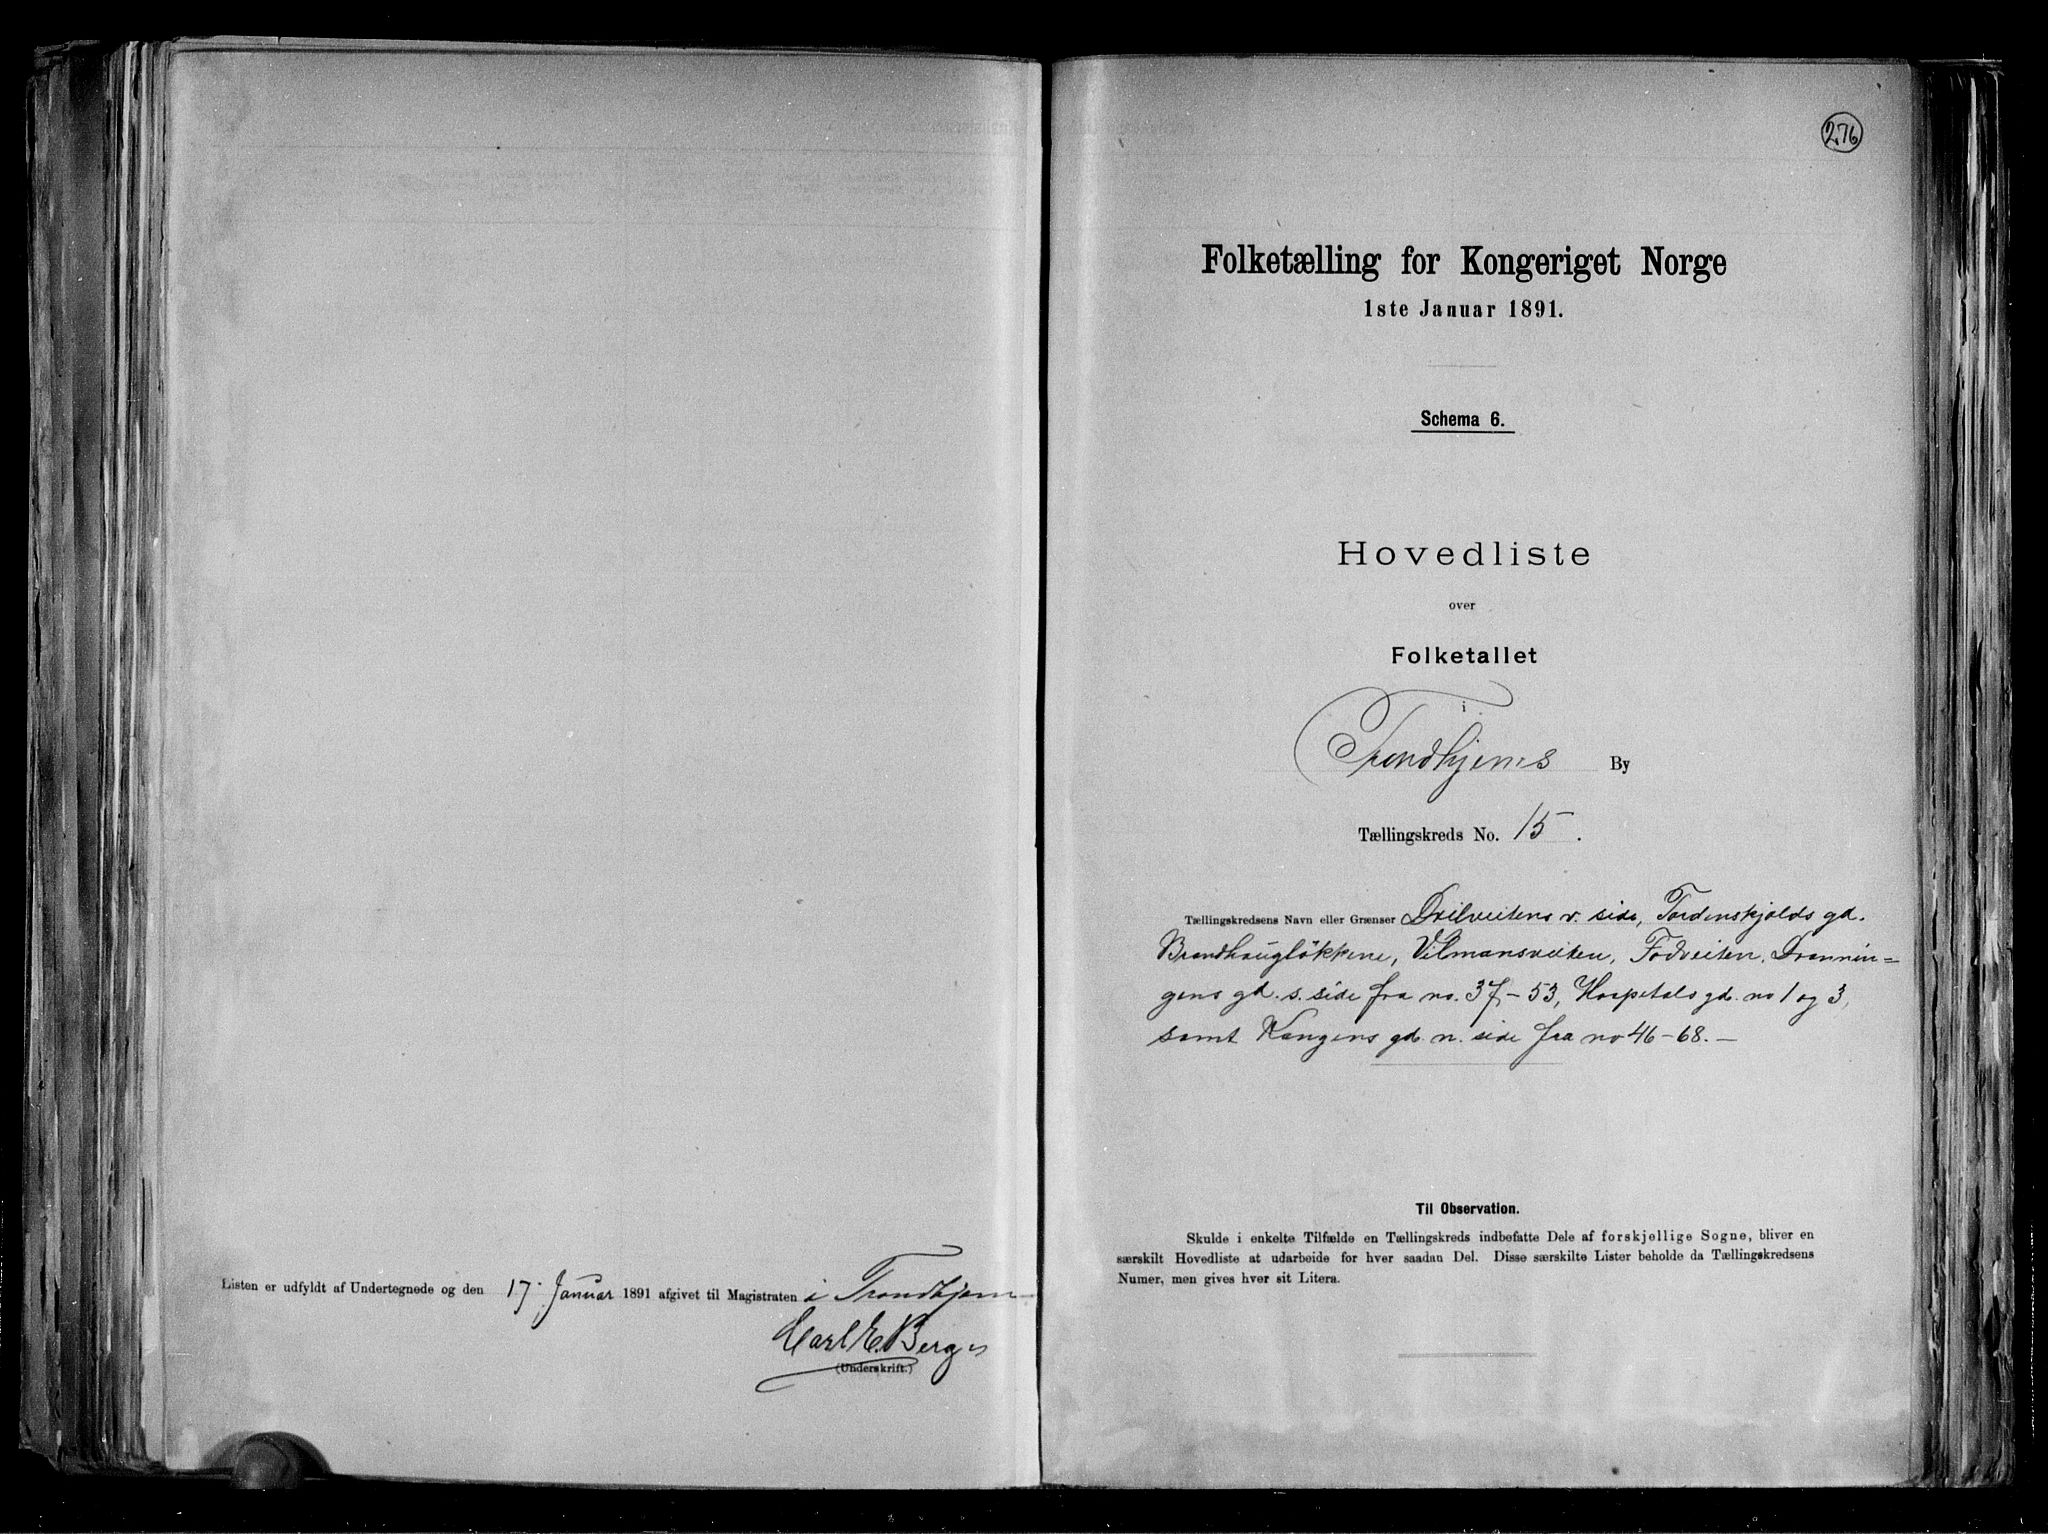 Listen er udfyldt af Undertegnede og den 17. Januar 1891 afgivet til Magistraten i Trondhjem
Carl E. Berg
(Underskrift.)
276
Folketælling for Kongeriget Norge
1ste Januar 1891.
Schema 6.
Hovedliste
over
Folketallet
i
Trondhjems By
Tællingskreds No. 15.
Tællingskredsens Navn eller Grænser Drilveitens v. side, Tordenskjolds gd.
Brandhaugløkkene, Vilmansveiten, Fodveiten, Dronnin=
gens gd. s. side fra no. 37-53, Hospitals gd. no 1 og 3,
samt Kongens gd. n. side fra no 46-68. –
Til Observation.
Skulde i enkelte Tilfælde en Tællingskreds indbefatte Dele af forskjellige Sogne, bliver en
særskilt Hovedliste at udarbeide for hver saadan Del. Disse særskilte Lister beholde da Tællingskredsens
Numer, men gives hver sit Litera.